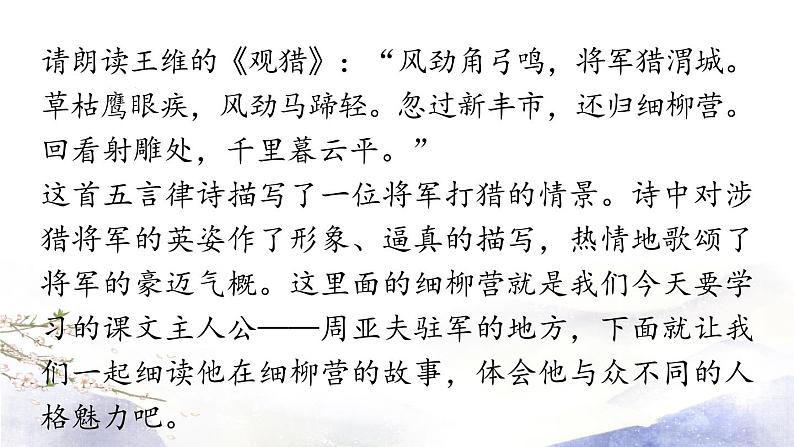 请朗读王维的《观猎》：“风劲角弓鸣，将军猎渭城。
草枯鹰眼疾，风劲马蹄轻。忽过新丰市，还归细柳营。
回看射雕处，千里暮云平。”
这首五言律诗描写了一位将军打猎的情景。诗中对涉
猎将军的英姿作了形象、逼真的描写，热情地歌颂了
将军的豪迈气概。这里面的细柳营就是我们今天要学
习的课文主人公——周亚夫驻军的地方，下面就让我
们一起细读他在细柳营的故事，体会他与众不同的人
格魅力吧。